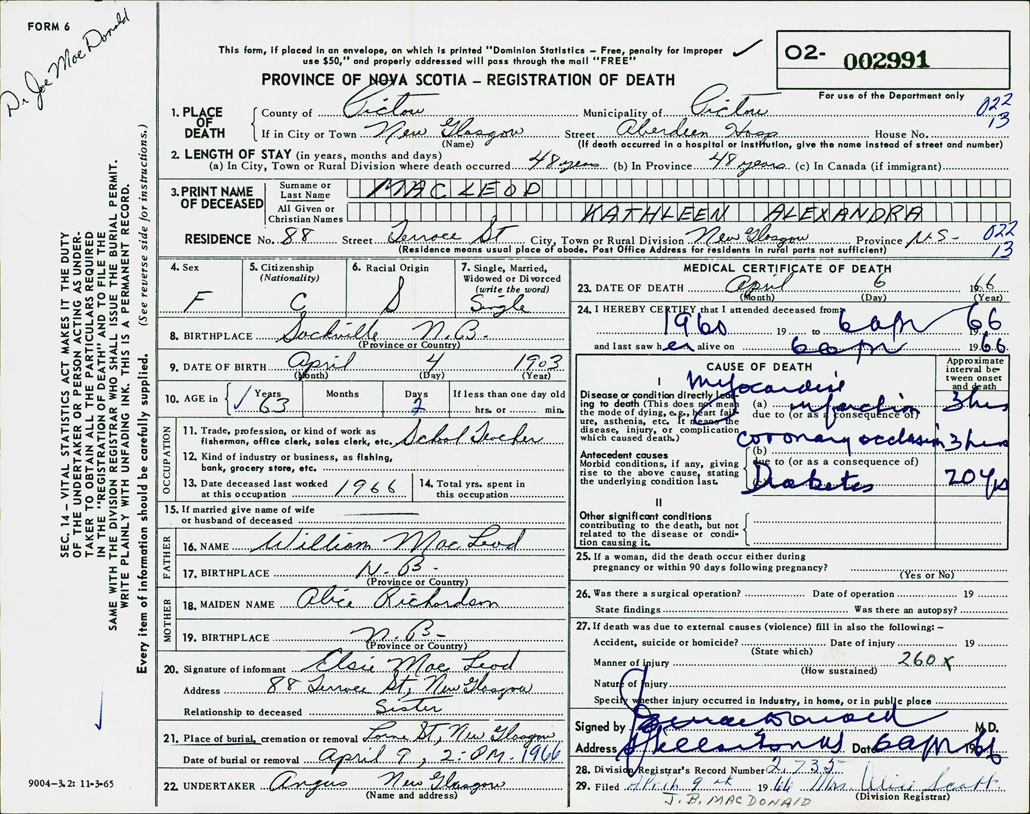 FORM 6
Dr Joe MacDonald
This form, if placed in an envelope, on which is printed "Dominion Statistics – Free, penalty for improper
use $50," and properly addressed will pass through the mail "FREE"
PROVINCE OF NOVA SCOTIA – REGISTRATION OF DEATH
02- 002991
For use of the Department only
1. PLACE OF DEATH County of Pictou Municipality of Pictou 022
If in City or Town New Glasgow Street Aberdeen Hosp House No. 13
(Name) (If death occurred in a hospital or institution, give the name instead of street and number)
2. LENGTH OF STAY (in years, months and days)
(a) In City, Town or Rural Division where death occurred 48 years (b) In Province 48 years (c) In Canada (if immigrant)
3. PRINT NAME OF DECEASED Surname or Last Name MACLEOD
All Given or Christian Names KATHLEEN ALEXANDRA
RESIDENCE No. 88 Street Terrace St City, Town or Rural Division New Glasgow Province N.S- 022
(Residence means usual place of abode. Post Office Address for residents in rural parts not sufficient) 13
4. Sex F
5. Citizenship (Nationality) C
6. Racial Origin S
7. Single, Married, Widowed or Divorced (write the word) Single
8. BIRTHPLACE Sackville N.B.
(Province or Country)
9. DATE OF BIRTH April 4 1903
(Month) (Day) (Year)
10. AGE in Years 63 Months Days 2 If less than one day old hrs. or min.
OCCUPATION
11. Trade, profession, or kind of work as
fisherman, office clerk, sales clerk, etc. School Teacher
12. Kind of industry or business, as fishing,
bank, grocery store, etc.
13. Date deceased last worked
at this occupation 1966
14. Total yrs. spent in
this occupation
15. If married give name of wife
or husband of deceased
FATHER
16. NAME William MacLeod
17. BIRTHPLACE N.B-
(Province or Country)
MOTHER
18. MAIDEN NAME Alice Richardson
19. BIRTHPLACE N.B-
(Province or Country)
20. Signature of informant Elsie MacLeod
Address 88 Terrace St, New Glasgow
Relationship to deceased Sister
21. Place of burial, cremation or removal Lorne St, New Glasgow
Date of burial or removal April 9, 2:PM. 1966
22. UNDERTAKER Angus New Glasgow
(Name and address)
MEDICAL CERTIFICATE OF DEATH
23. DATE OF DEATH April 6 1966
(Month) (Day) (Year)
24. I HEREBY CERTIFY that I attended deceased from
1960 19 to 6 apr 66
and last saw her alive on 6 apr 1966
CAUSE OF DEATH
Approximate interval between onset and death
I
Disease or condition directly leading to death (This does not mean the mode of dying, e.g., heart failure, asthenia, etc. It means the disease, injury, or complication which caused death.)
(a) Myocardial infarction 3 hrs
due to (or as a consequence of)
Antecedent causes
Morbid conditions, if any, giving rise to the above cause, stating the underlying condition last.
(b) coronary occlusion 3 hrs
due to (or as a consequence of)
Diabetes 20 yrs
II
Other significant conditions
contributing to the death, but not related to the disease or condition causing it.
25. If a woman, did the death occur either during
pregnancy or within 90 days following pregnancy?
(Yes or No)
26. Was there a surgical operation? Date of operation 19
State findings Was there an autopsy?
27. If death was due to external causes (violence) fill in also the following: –
Accident, suicide or homicide? Date of injury 19
(State which)
Manner of injury 260x
(How sustained)
Nature of Injury
Specify whether injury occurred in industry, in home, or in public place
Signed by M.D.
Address Stellarton NS Date 6 apr 1966
28. Division Registrar's Record Number 2,735
29. Filed April 9th 1966 Mrs. Alice Scott
(Division Registrar)
J.B. MACDONALD
SEC. 14 – VITAL STATISTICS ACT MAKES IT THE DUTY
OF THE UNDERTAKER OR PERSON ACTING AS UNDER-
TAKER TO OBTAIN ALL THE PARTICULARS REQUIRED
IN THE "REGISTRATION OF DEATH" AND TO FILE THE
SAME WITH THE DIVISION REGISTRAR WHO SHALL ISSUE THE BURIAL PERMIT.
WRITE PLAINLY WITH UNFADING INK. THIS IS A PERMANENT RECORD.
Every item of information should be carefully supplied. (See reverse side for instructions.)
9004-3.2: 11-3-65